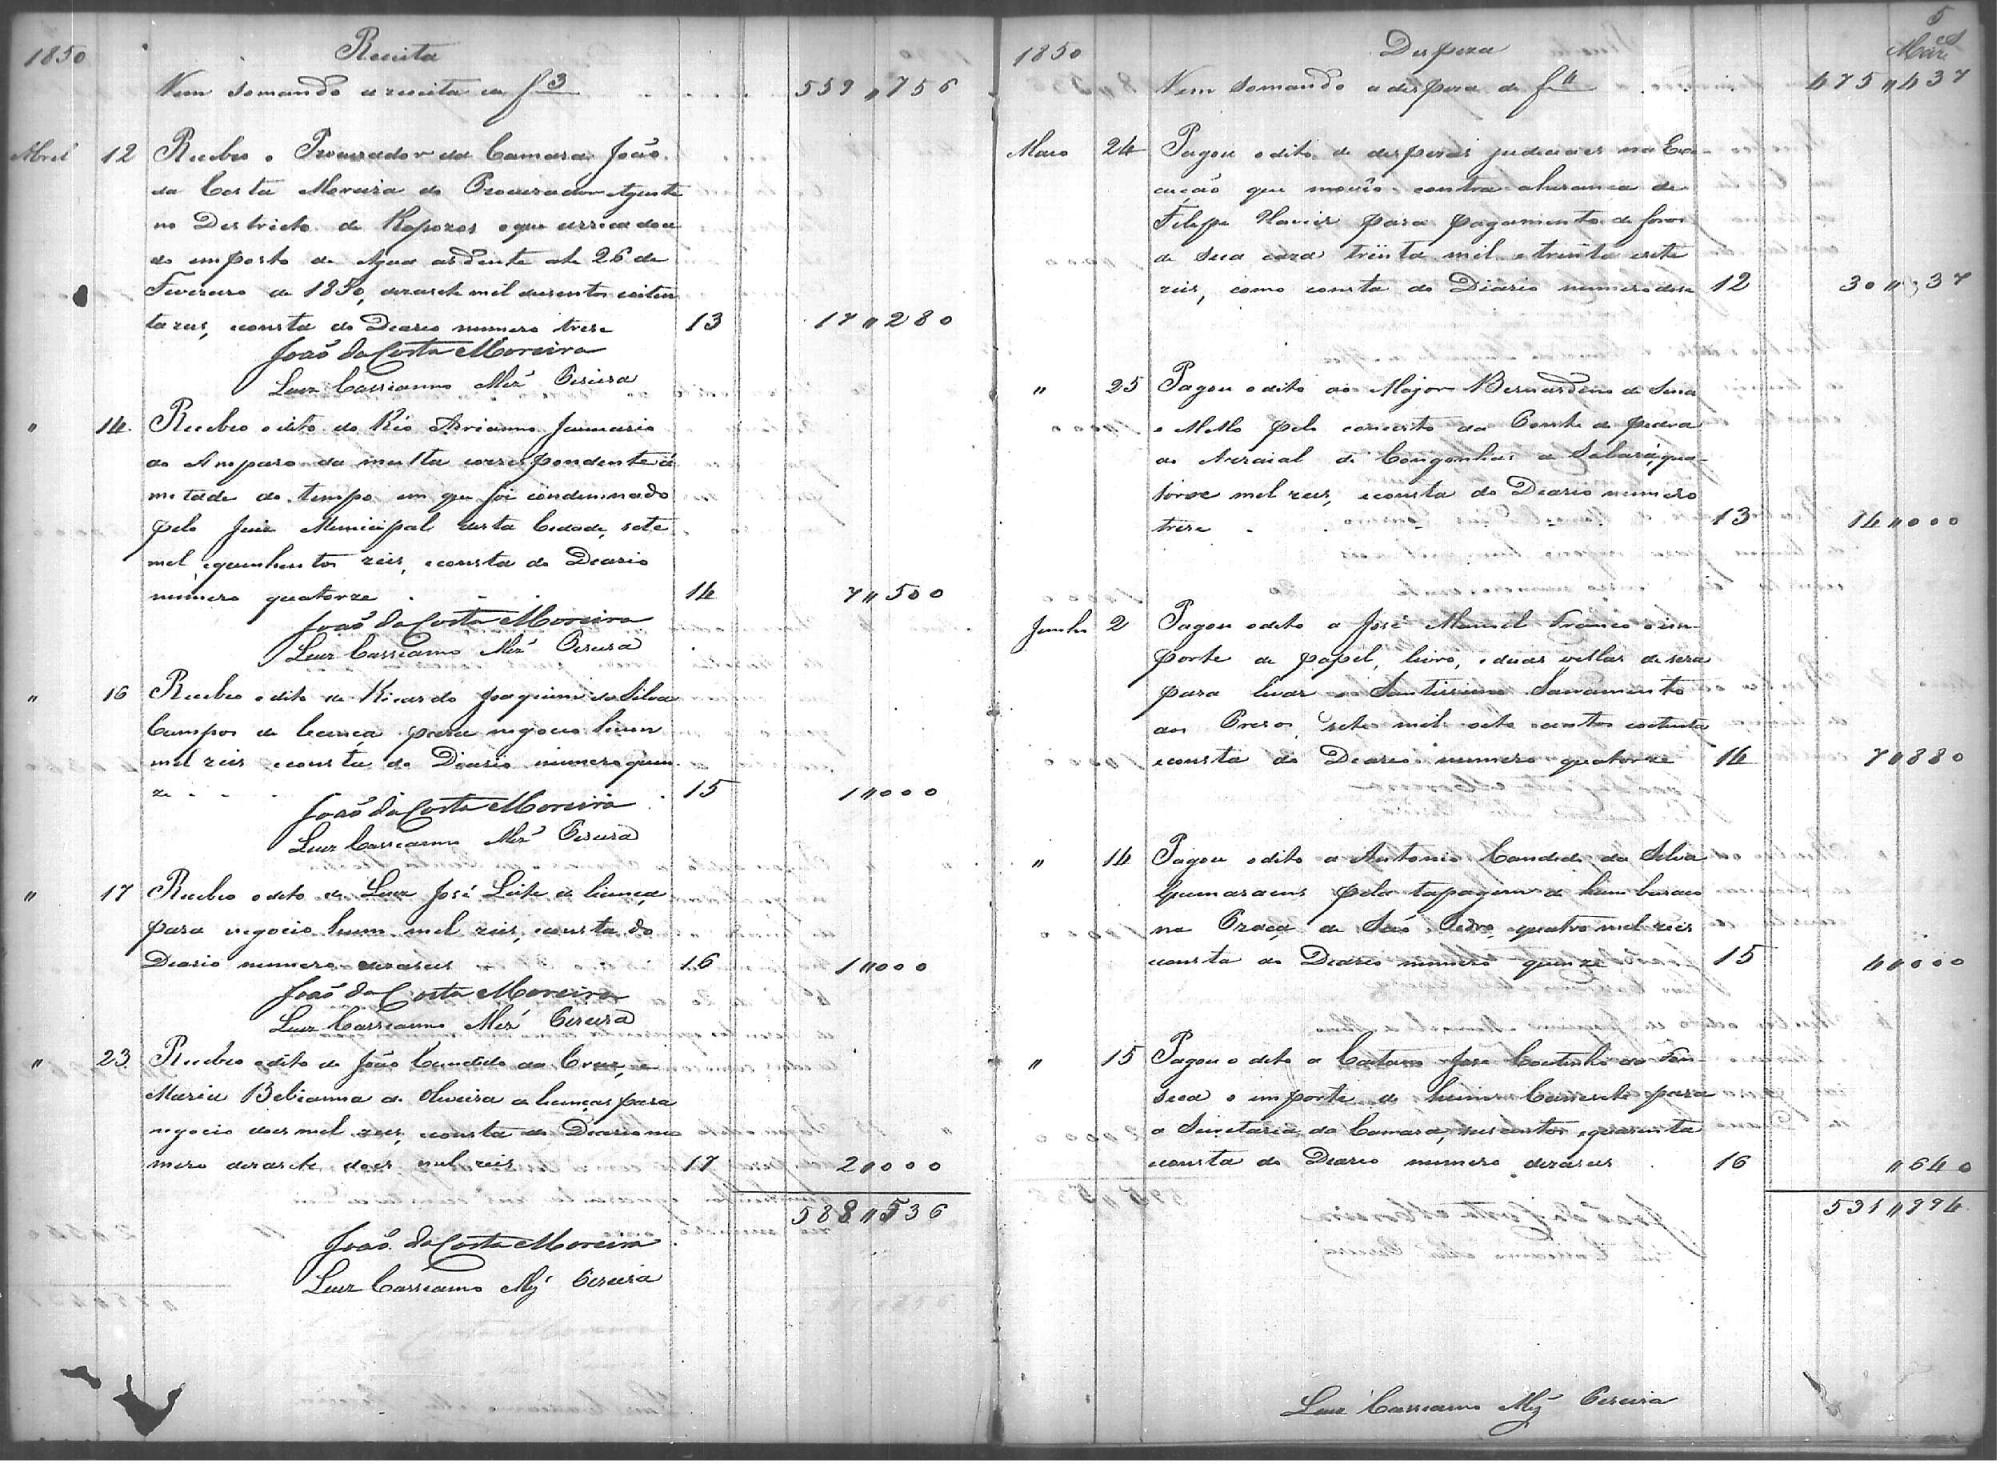 1850
Receita
Vem somando a receita de f 3 559 " 756
Abril 12 Recebeo o Procurador da Camara João
da Costa Moreira do Procurador Agente
no Destricto de Rapozos o que arrecadou
do imposto de Agua ardente ate 26 de
Fevereiro de 1850, desasete mil dusentos eoiten
ta reis, consta do Deario numero trese 13 17 " 280
João da Costa Moreira
Luiz Cassianno Miz Pereira
" 14 Recebeo o dito do Réo Adrianno Januario
do Amparo da multa correspondente á
metade do tempo em que foi condemnado
pelo Juiz Municipal desta Cidade, sete
mil, equinhentos reis, econsta do Deario
numero quatorze 14 7 " 500
João da Costa Moreira
Luiz Cassianno Miz Pereira
" 16 Recebeo o dito de Ricardo Joaquim da Silva
Campos de licença para negocio hum
mil reis, econsta do Deario numero quin
ze 15 1 " 000
João da Costa Moreira
Luiz Cassianno Miz Pereira
" 17 Recebeo o dito de Luiz José Leite de licença
para negocio hum mil reis, consta do
Deario numero desaseis 16 1 " 000
João da Costa Moreira
Luiz Cassianno Miz Pereira
" 23 Recebeo o dito de João Candido da Cruz, e
Maria Bebianna de Oliveira de licenças para
negocio dois mil reis, econsta do Deario nu
mero desasete dois mil reis 17 2 " 000
588 " 536
João da Costa Moreira
Luiz Cassianno Miz Pereira
5
1850
Despeza
Vem somando a despeza de f 4 475 " 437
Maio 24 Pagou o dito de despesas judiciaes na Exe-
cução que moveo contra aherança de
Felippe Xavier para pagamento de foros
de sua caza trinta mil e trinta esete
reis, como consta do Diario numero dose 12 30 " 037
" 25 Pagou o dito ao Major Bernardino de Sena
e Mello pelo concerto da Ponte de pedra
do Arraial de Congonhas de Sabará, qua-
torze mil reis, econsta do Deario numero
trese 13 14 " 000
Junho 2 Pagou o dito a José Manoel Franco o im-
porte de papel, livro, eduas vellas de sera
para levar o Santissimo Sacramento
aos Presos, sete mil oito centos eoitenta
econsta do Deario numero quatorze 14 7 " 880
" 14 Pagou o dito a Antonio Candido da Silva
Guimaraens pela tapagem de hum buraco
na Praça de São Pedro, quatro mil reis
consta do Deario numero quinze 15 4 " 000
" 15 Pagou o dito a Caetano José Coutinho da Fon-
seca o importe de hum Canivete para
a Secretaria da Camara, seiscentos equarenta
econsta do Deario numero dezaseis 16 " 640
531 " 994
Luiz Cassianno Miz Pereira